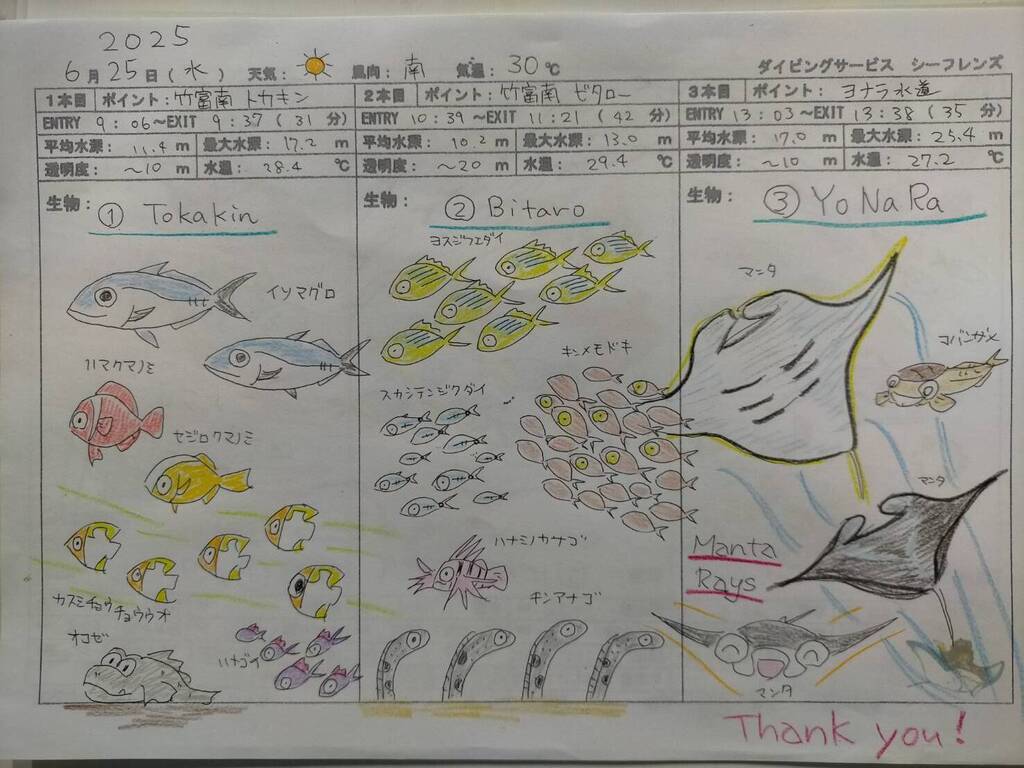 2025
6月25日(水) 天気: 風向: 南 気温: 30℃ ダイビングサービス シーフレンズ
1本目 ポイント:竹富南 トカキン
ENTRY 9:06~EXIT 9:37 (31 分)
平均水深: 11.4 m 最大水深: 17.2 m
透明度: ~10 m 水温: 28.4 ℃
生物: ① Tokakin
イソマグロ
ハマクマノミ
セジロクマノミ
カスミチョウチョウウオ
オコゼ
ハナゴイ
2本目 ポイント:竹富南 ビタロー
ENTRY 10:39~EXIT 11:21 (42 分)
平均水深: 10.2 m 最大水深: 13.0 m
透明度: ~20 m 水温: 29.4 ℃
生物: ② Bitaro
ヨスジフエダイ
キンメモドキ
スカシテンジクダイ
ハナミノカサゴ
チンアナゴ
3本目 ポイント: ヨナラ水道
ENTRY 13:03~EXIT 13:38 (35 分)
平均水深: 17.0 m 最大水深: 25.4 m
透明度: ~10 m 水温: 27.2 ℃
生物: ③ YoNaRa
マンタ
コバンザメ
マンタ
Manta
Rays
マンタ
Thank you!